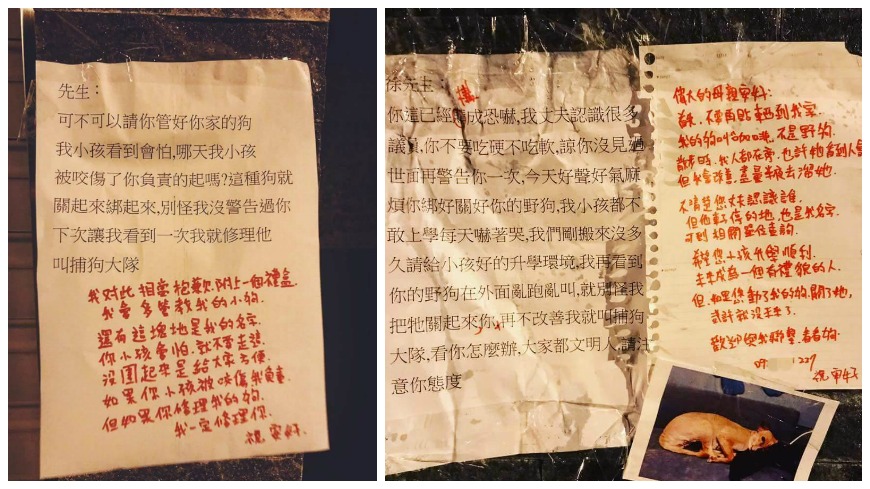 先生：
可不可以請你管好你家的狗
我小孩看到會怕,哪天我小孩
被咬傷了你負責的起嗎?這種狗就
關起來綁起來,別怪我沒警告過你
下次讓我看到一次我就修理他
叫捕狗大隊
我對此相當抱歉.附上一個禮盒
我會多管教我的小狗.
還有這塊地是我的名字
你小孩會怕.就不要走業.
沒圍起來是給大家方便.
如果你小孩被咬傷我負責.
但如果你修理我的狗.
我一定修理你.
祝 安好.
徐先生：
你這已經構成恐嚇,我丈夫認識很多
議員,你不要吃硬不吃軟,諒你沒見過
世面再警告你一次,今天好聲好氣麻
煩你綁好關好你的野狗,我小孩都不
敢上學每天嚇著哭,我們剛搬來沒多
久請給小孩好的升學環境,我再看到
你的野狗在外面亂跑亂叫,就別怪我
把牠關起來你,再不改善我就叫捕狗
大隊,看你怎麼辦,大家都文明人,請注
意你態度
偉大的母親安好:
首先.不要再
我的狗叫咖哩.不是野狗.
散步時.我人都在旁.也許牠看到人會
但我會改善.盡量半夜去溜牠.
不清楚您丈夫認識誰.
但他車停的地.也是我名字.
可到相關單位查詢.
希望您小孩升學順利.
未來成為一個有禮貌的人.
但.如果您動了我的狗.關了牠.
或許我沒王法了.
歡迎與我聯繫.看看狗.
09 1227
祝 安好